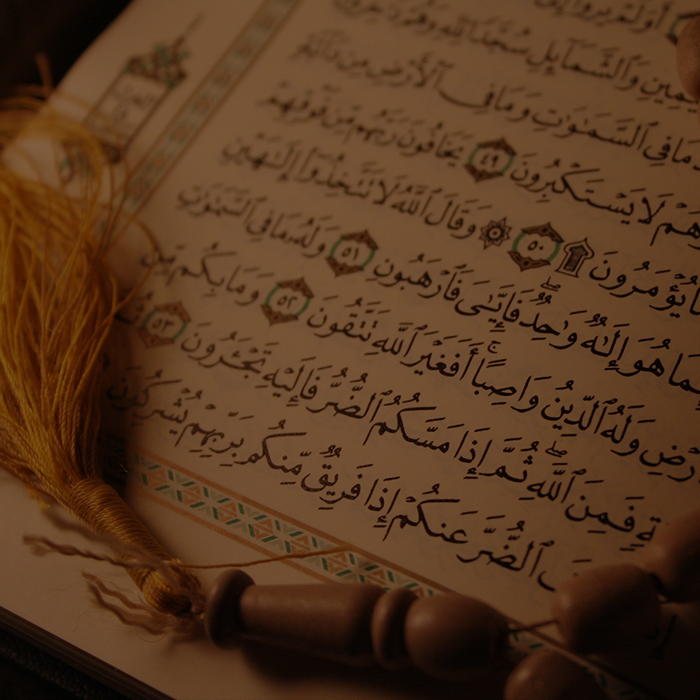 أَوَلَمْ يَرَوْا۟
وَٱلشَّمَآئِلِ سُجَّدًا لِّلَّهِ وَهُمْ دَٰخِرُونَ
مَا فِى ٱلسَّمَٰوَٰتِ وَمَا فِى ٱلْأَرْضِ مِن دَآبَّةٍ
لَا يَسْتَكْبِرُونَ ٤٩ يَخَافُونَ رَبَّهُم مِّن فَوْقِهِمْ
يُؤْمَرُونَ ۩ ٥٠ ۞ وَقَالَ ٱللَّهُ لَا تَتَّخِذُوٓا۟ إِلَٰهَيْنِ
هُوَ إِلَٰهٌ وَٰحِدٌ ۖ فَإِيَّٰىَ فَٱرْهَبُونِ ٥١ وَلَهُۥ مَا فِى ٱلسَّمَٰوَٰتِ
وَلَهُ ٱلدِّينُ وَاصِبًا ۚ أَفَغَيْرَ ٱللَّهِ تَتَّقُونَ ٥٢ وَمَا بِكُم مِّن
فَمِنَ ٱللَّهِ ۖ ثُمَّ إِذَا مَسَّكُمُ ٱلضُّرُّ فَإِلَيْهِ تَجْـَٔرُونَ ٥٣
ٱلضُّرَّ عَنكُمْ إِذَا فَرِيقٌ مِّنكُم بِرَبِّهِمْ يُشْرِكُونَ